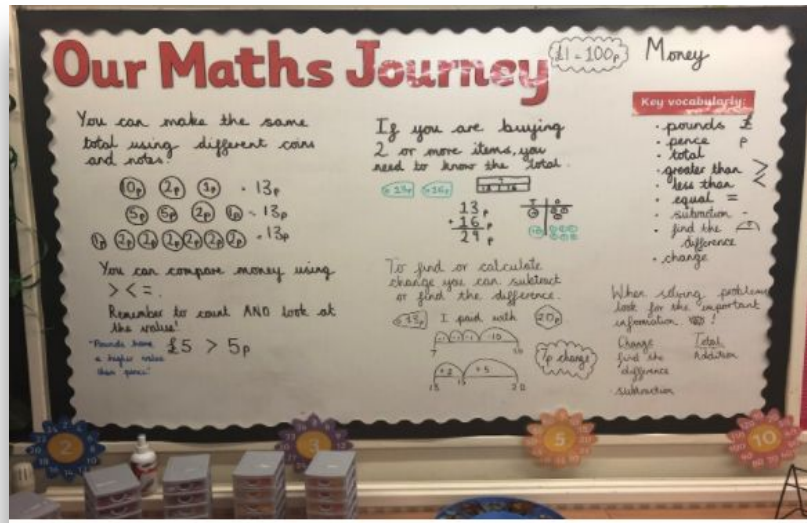 Our Maths Journey
£1 = 100p
Money
You can make the same
total using different coins
and notes.
10p 2p 1p = 13p
5p 5p 2p 1p = 13p
1p 2p 2p 2p 2p 2p 2p = 13p
You can compare money using
> < =.
Remember to count AND look at
the value!
"Pounds have
a higher value
than pence"
£5 > 5p
If you are buying
2 or more items, you
need to know the total.
13p 16p
13p
+ 16p
29p
To find or calculate
change you can subtract
or find the difference.
13p I paid with 20p
7p change
+2 +5
13 15 20
Key vocabularly:
• pounds £
• pence p
• total
• greater than >
• less than <
• equal =
• subtraction -
• find the
difference
• change
When solving problems
look for the important
information !
Change
find the
difference
subtraction
Total
Addition
2
3
5
10